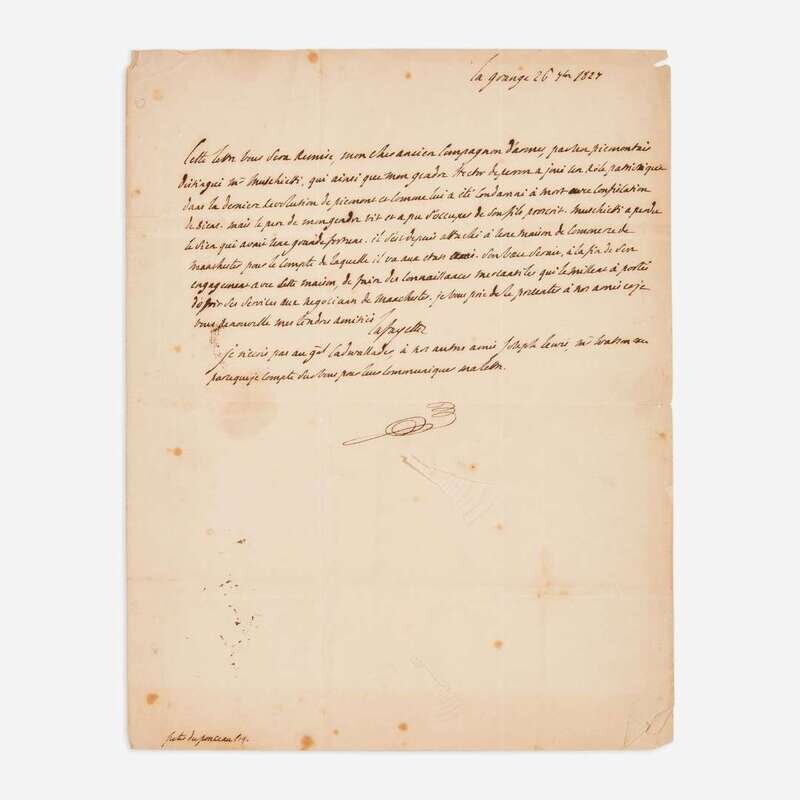 la grange 26 7bre 1827
Cette lettre vous Sera Remise, mon cher ancien Compagnon d'armes, par un piemontais
distingué Mr Muschietti, qui ainsi que mon gendre Victor de perron a joué un Rôle patriotique
dans la derniere Revolution de piemont et Comme lui a été Condamné à Mort avec Confiscation
de Biens. mais le pere de mon gendre vit et a pu s'occuper de Son fils proscrit. Muschietti a perdu
le Bien qui avait une grande fortune. il s'est depuis attaché à Une maison de Commerce de
manchester pour le Compte de laquelle il va aux etats unis. Son but Serait, à la fin de Son
engagement avec Cette maison, de faire des Connaissances mercantiles qui le missent à portée
d'offrir Ses Services aux negocians de Manchester. je vous prie de le presenter à nos amis et je
vous Renouvelle mes tendres amitiés
Lafayette
je n'ecris pas au gal Cadwallader à nos autres amis Joseph Lewis, Mr Watson
parceque je Compte Sur Vous pour leur Communiquer ma lettre.
peter du ponceau esq.